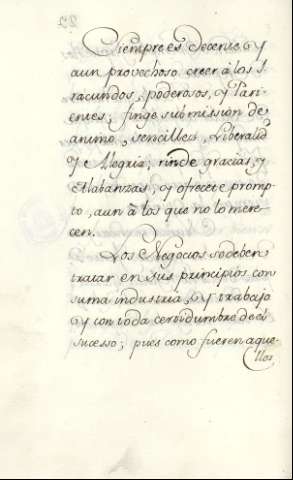 Siempre es decente, y
aun provechoso creer à los I
racundos, poderosos, y Pari
entes; finge submission de
animo, sencillez, Liberalid
y Alegria; rinde gracias, y
Alabanzas, y ofrecete promp
to, aun à los que no lo mere
cen.
Los Negocios se deben
tratar en sus principios con
suma industria, y trabajo
y con toda certidumbre del
sucesso; pues como fueren aque
llos